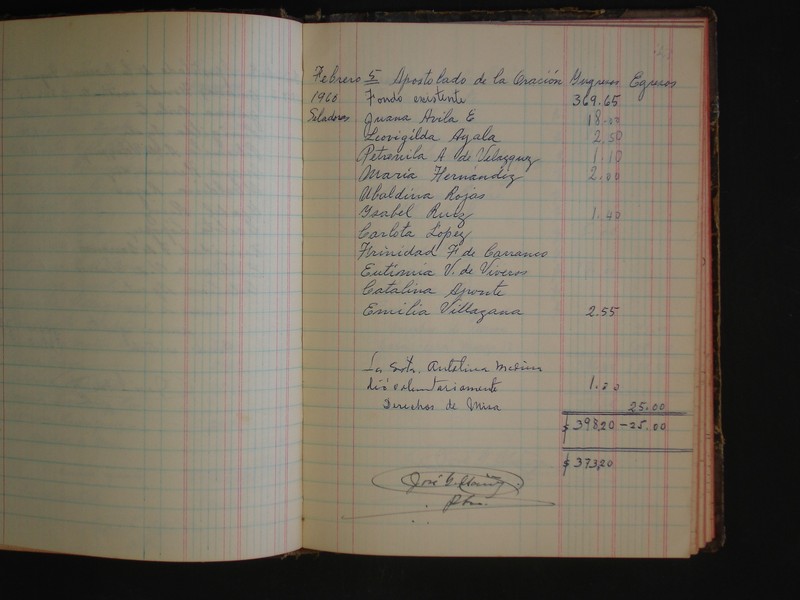 Febrero 5 Apostolado de la Oración Yngresos Egresos
1960 Fondo existente 369.65
Seladoras Juana Avila E 18.00
Leovigilda Ayala 2.50
Petronila A. de Velazquez 1.10
María Hernández 2.00
Ubaldina Rojas
Ysabel Ruiz 1.40
Carlota López
Trinidad F. de Carranco
Eutimia V. de Viveros
Catalina Aponte
Emilia Villagana 2.55
La Srta. Antelina Medina
dió voluntariamente 1.00
Derechos de Misa 25.00
$ 398.20 - 25.00
$ 373.20
José
Pbro.